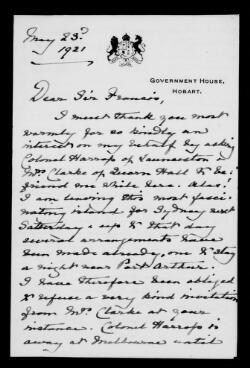 May 23rd
1921
GOVERNMENT HOUSE,
HOBART.
Dear Sir Francis,
I must thank you most
warmly for so kindly an
interest on my behalf by asking
Colonel Harrap of Launceston &
Mrs. Clarke of Quorn Hall to be-
friend me while here. Alas!
I am leaving this most fasci-
nating island for Sydney next
Saturday & up to that day
several arrangements have
been made already, one to stay
a night near Port Arthur.
I have therefore been obliged
to refuse a very kind invitation
from Mrs. Clarke at your
instance. Colonel Harrap is
away at Melbourne until